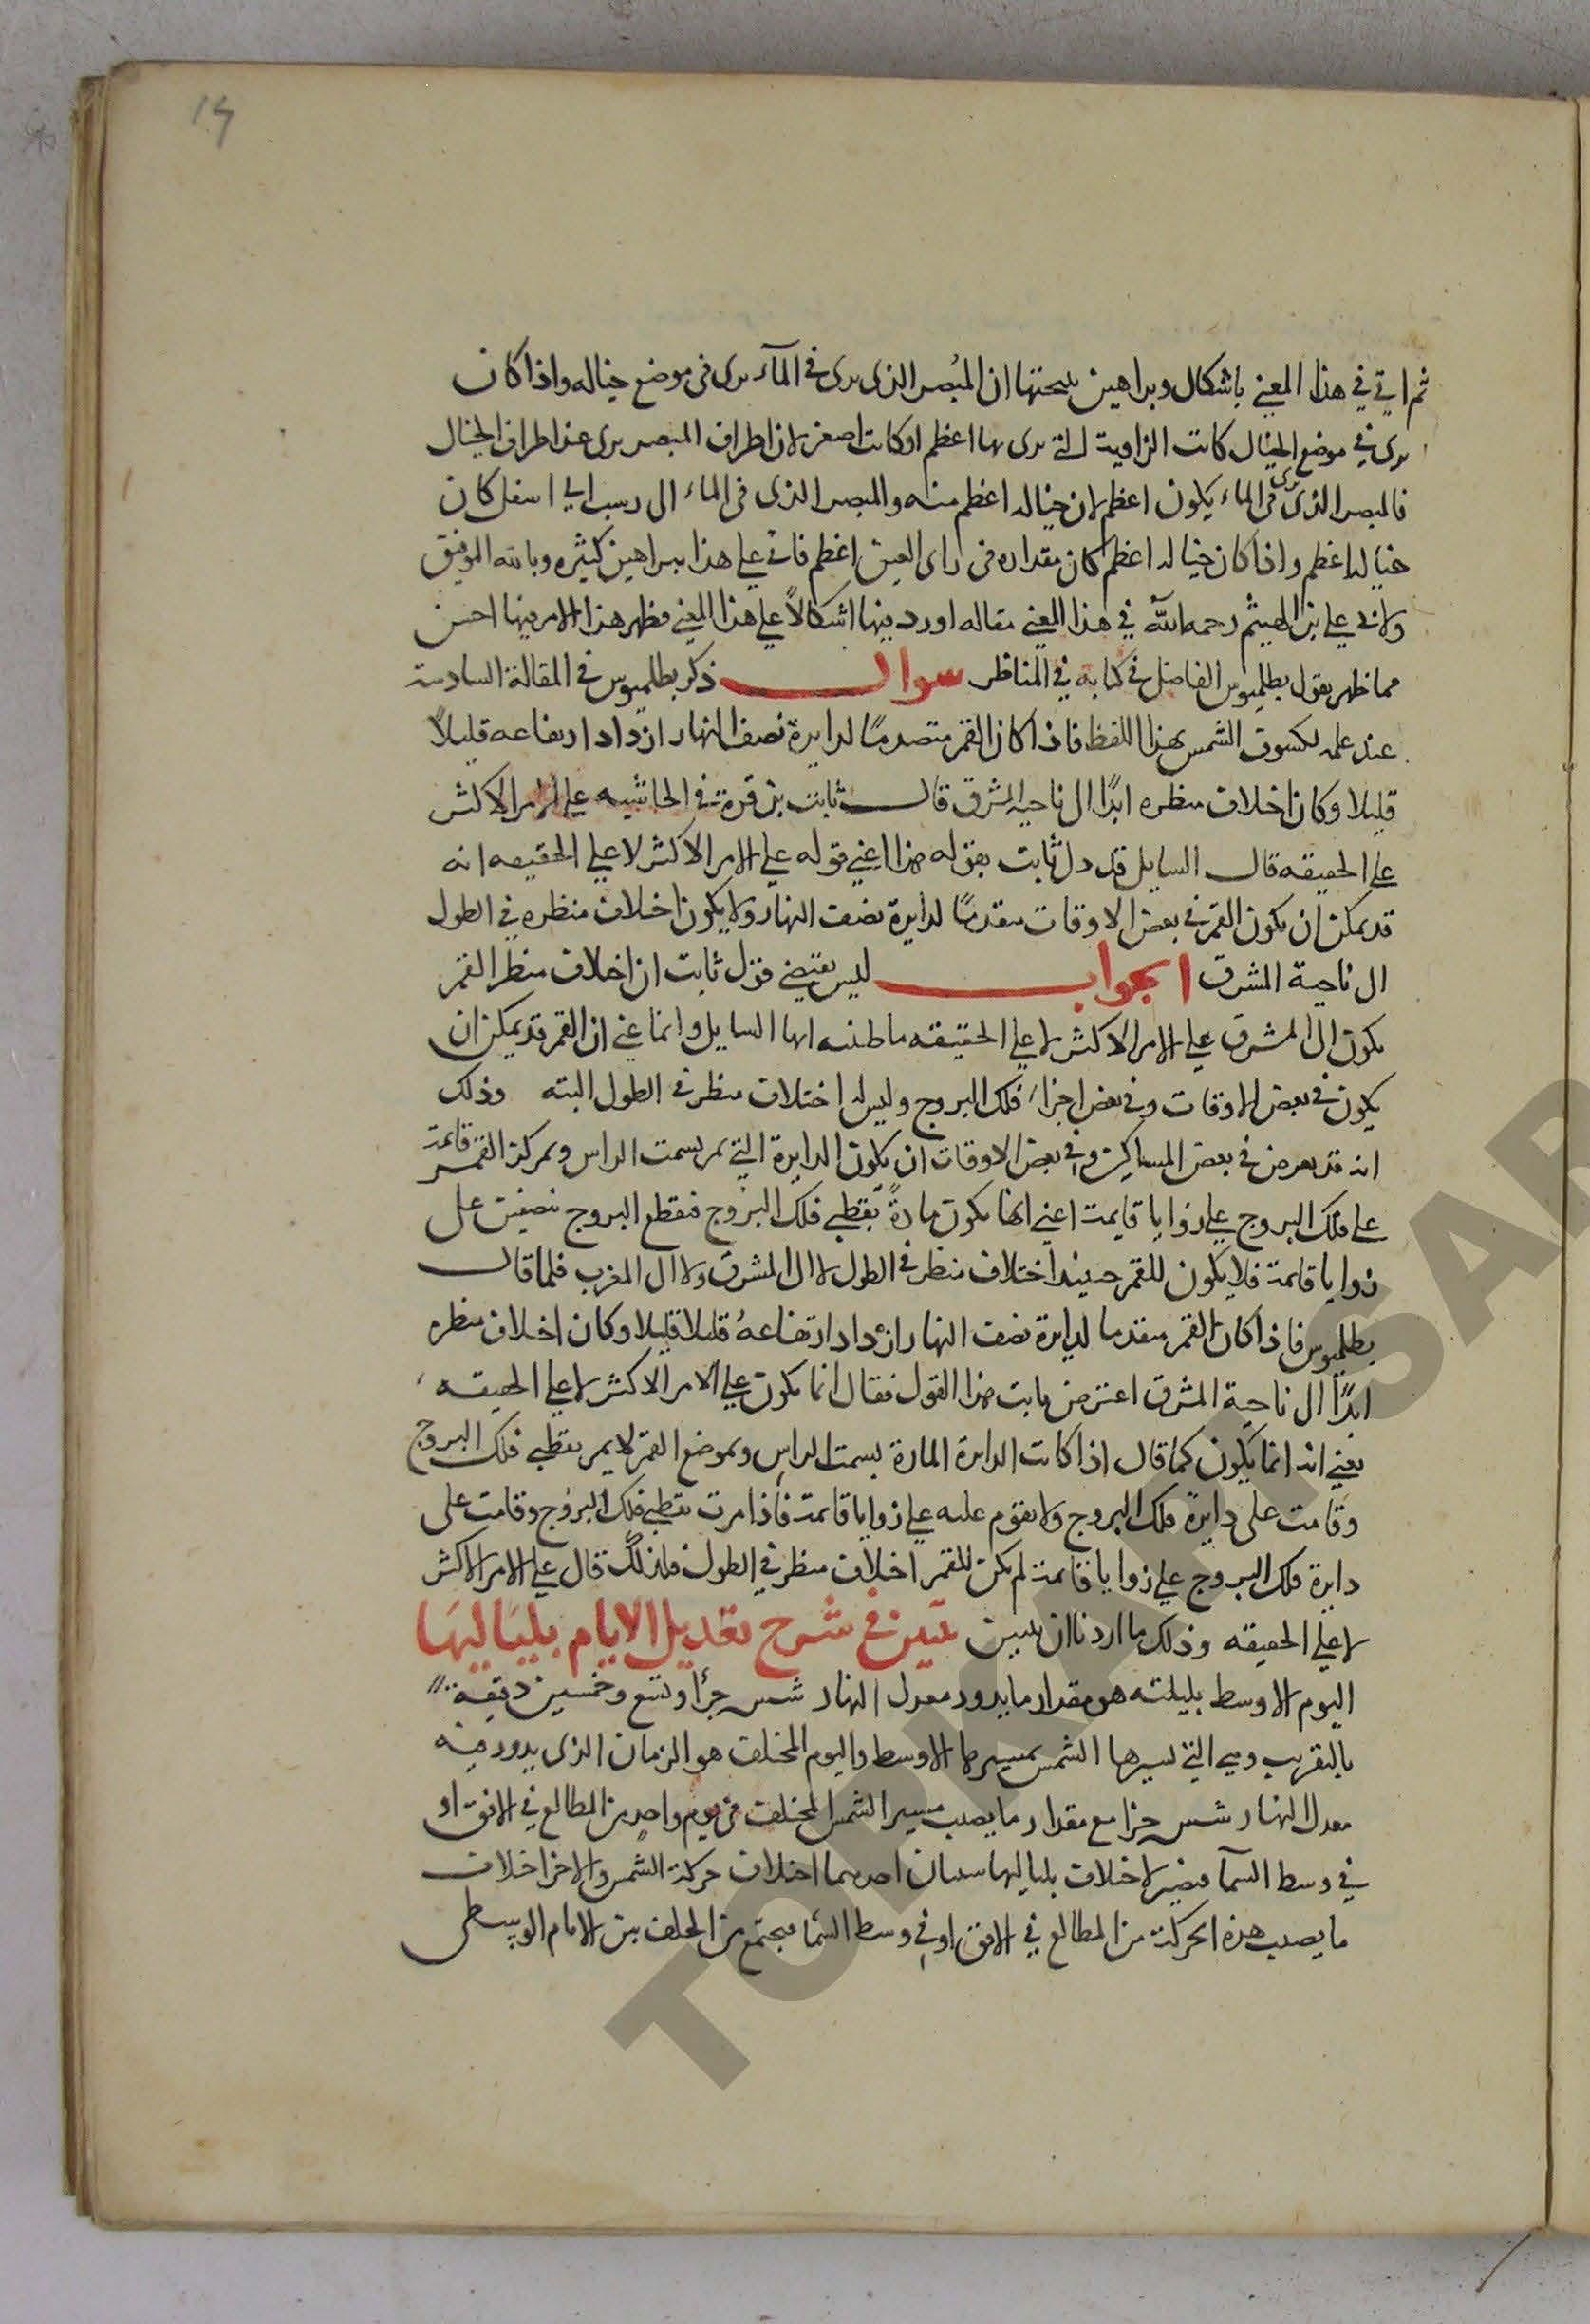 14
ثم اتى في هذا المعنى باشكال وبراهين نتيجتها ان المُبصر الذى يرى في المآء يرى فى موضع خياله واذا كان
يرى في موضع الخيال كانت الزاوية التى يرى بها اعظم او كانت اصغر لان اطراف المبصر يرى عند اطراف الخيال
فالمبصر الذى يرى فى الماء يكون اعظم لان خياله اعظم منه والمبصر الذى فى الماء الى اسفل كان
خياله اعظم واذا كان خياله اعظم كان مقداره فى راى العين اعظم فاتى على هذا ببراهين كثيره وبالله التوفيق
ولابى على بن الهيثم رحمه الله في هذا المعنى مقاله اورد فيها اشكالاً على هذا المعنى فظهر هذا الامر فيها احسن
مما ظهر بقول بطلميوس الفاضل في كتابه في المناظر سوال ذكر بطلميوس فى المقالة السادسة
عند علمه لكسوف الشمس بهذا اللفظ فاذا كان القمر متقدمًا لدايرة نصف النهار ازداد ارتفاعه قليلاً
قليلا وكان اختلاف منظره ابدًا الى ناحية المشرق قال ثابت بن قرة فى الحاشيه على الامر الاكثر
على الحقيقه قال السايل قد دل ثابت بقوله هذا اعنى قوله على الامر الاكثر لا على الحقيقه انه
قد يمكن ان يكون القمر في بعض الاوقات متقدمًا لدايرة نصف النهار ولا يكون اختلاف منظره في الطول
الى ناحية المشرق الجواب ليس يقتضى قول ثابت ان اختلاف منظر القمر
يكون الى المشرق على الامر الاكثر لا على الحقيقه ما ظننته ايها السايل وانما عنى ان القمر قد يمكن ان
يكون فى بعض الاوقات وفى بعض اجزاء فلك البروج وليس له اختلاف منظر فى الطول البته وذلك
انه قد يعرض فى بعض المساكن وفى بعض الاوقات ان يكون الدايرة التى تمر بسمت الراس وبمركز القمر قائمة
على فلك البروج على زوايا قايمة اعنى انها تكون مارةً بقطبى فلك البروج فتقطع البروج بنصفين على
زوايا قائمة فلا يكون للقمر حينئذ اختلاف منظر فى الطول لا الى المشرق ولا الى المغرب فلما قال
بطلميوس فاذا كان القمر متقدما لدايرة نصف النهار ازداد ارتفاعهُ قليلا قليلا وكان اختلاف منظره
ابدًا الى ناحية المشرق اعترض ثابت هذا القول فقال انما يكون على الامر الاكثر لا على الحقيقه
يعنى انه انما يكون كما قال اذا كانت الدايرة المارة بسمت الراس وبموضع القمر لا يمر بقطبى فلك البروج
وقامت على دايرة فلك البروج ولا تقوم عليه على زوايا قائمة فاذا مرت بقطبى فلك البروج وقامت على
دايرة فلك البروج على زوايا قائمة لم يكن للقمر اختلاف منظر في الطول فلذلك قال على الامر الاكثر
لا على الحقيقه وذلك ما اردنا ان نبين تبين فى شرح تعديل الايام بلياليها
اليوم الاوسط بليلته هو مقدار ما يدور معدل النهار شس جزأ وتسع وخمسين دقيقة
بالتقريب وهى التى تسيرها الشمس بمسيرها الاوسط واليوم المختلف هو الزمان الذى يدور فيه
معدل النهار شس جزا مع مقدار ما يصيب مسير الشمس المختلف فى يوم واحد من المطالع في الافق او
في وسط السمآ فيصير لاختلاف بلياليها سببان احدهما اختلاف حركة الشمس والاخر اختلاف
ما يصيب هذه الحركة من المطالع في الافق او في وسط السما فيجتمع من الخلف بين الايام الوسطى